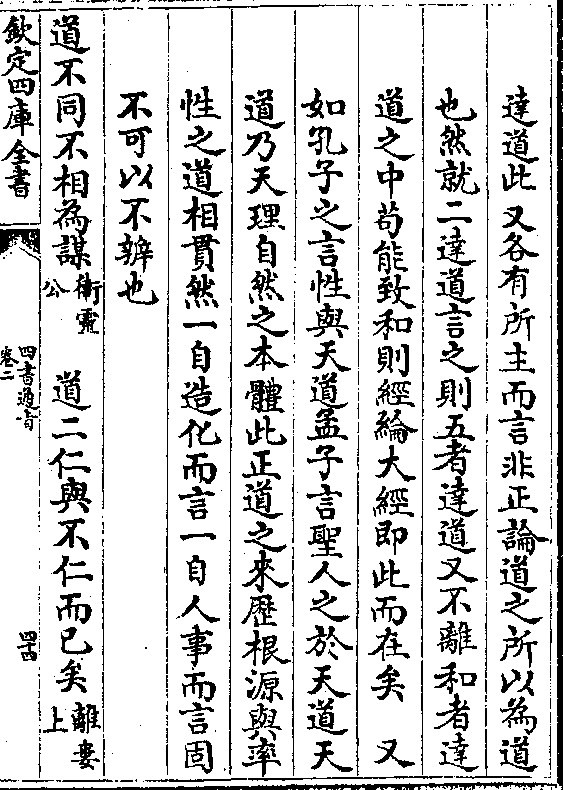 達道此又各有所主而言非正論道之所以為道
也然就二達道言之則五者達道又不離和者達
道之中茍能致和則經綸大經即此而在矣　又
如孔子之言性與天道孟子言聖人之於天道天
道乃天理自然之本體此正道之來歷根源與率
性之道相貫然一自造化而言一自人事而言固
不可以不辨也
道不同不相為謀衛靈公　道二仁與不仁而已矣離婁上
欽定四庫全書
四書通旨
卷二
四十四